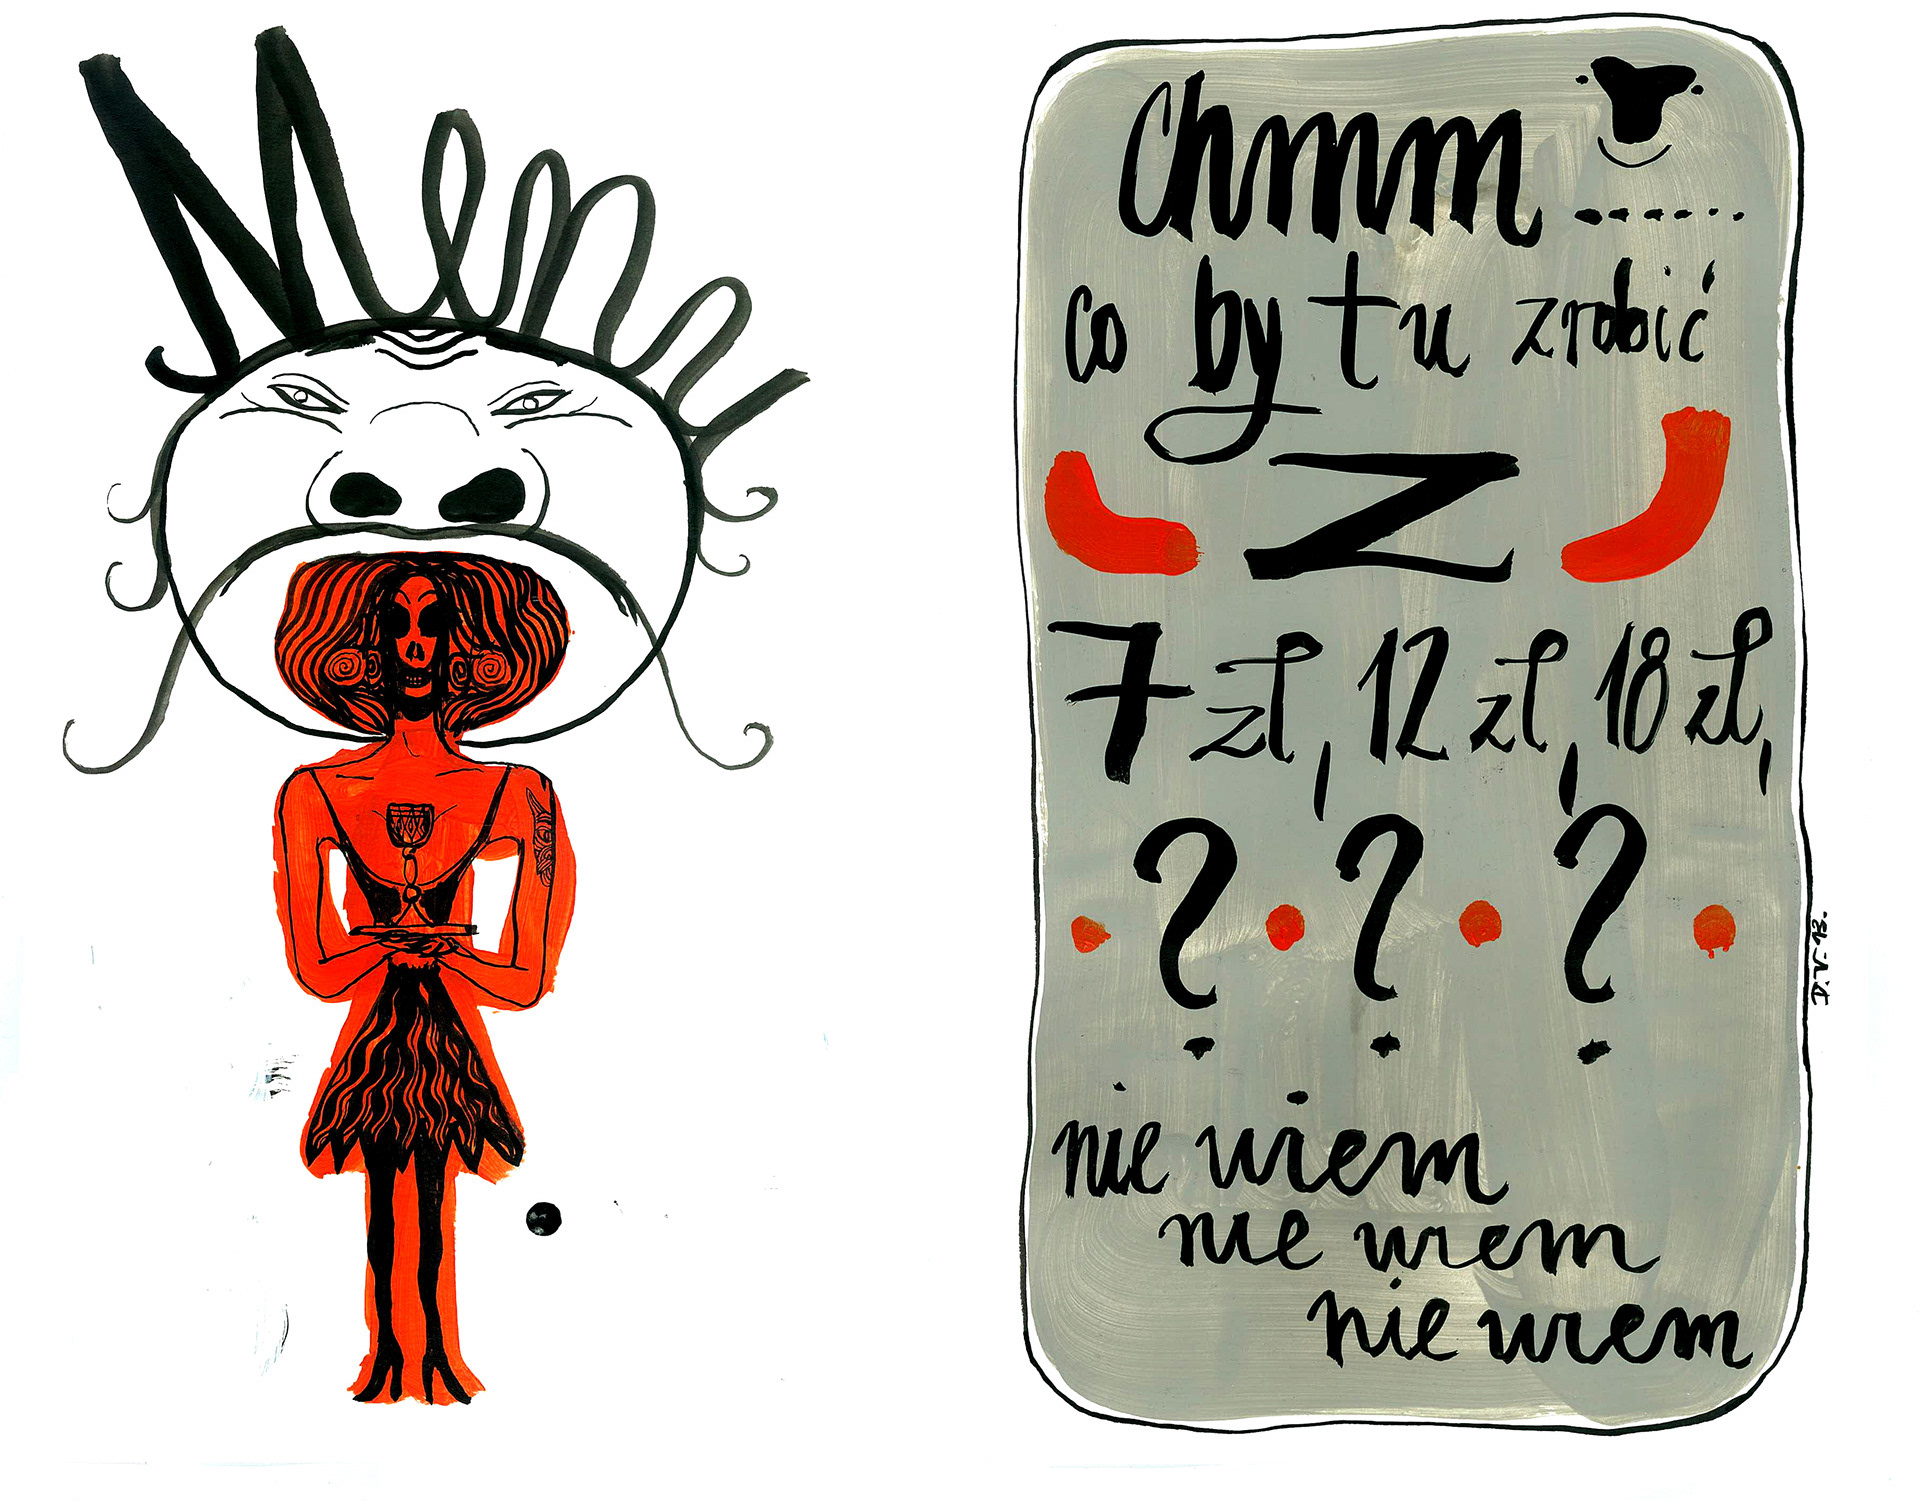 Menu
Chmm......
co by tu zrobić
Z
7 zł, 12 zł, 18 zł,
? ? ?
nie wiem
nie wiem
nie wiem
D.V-13.